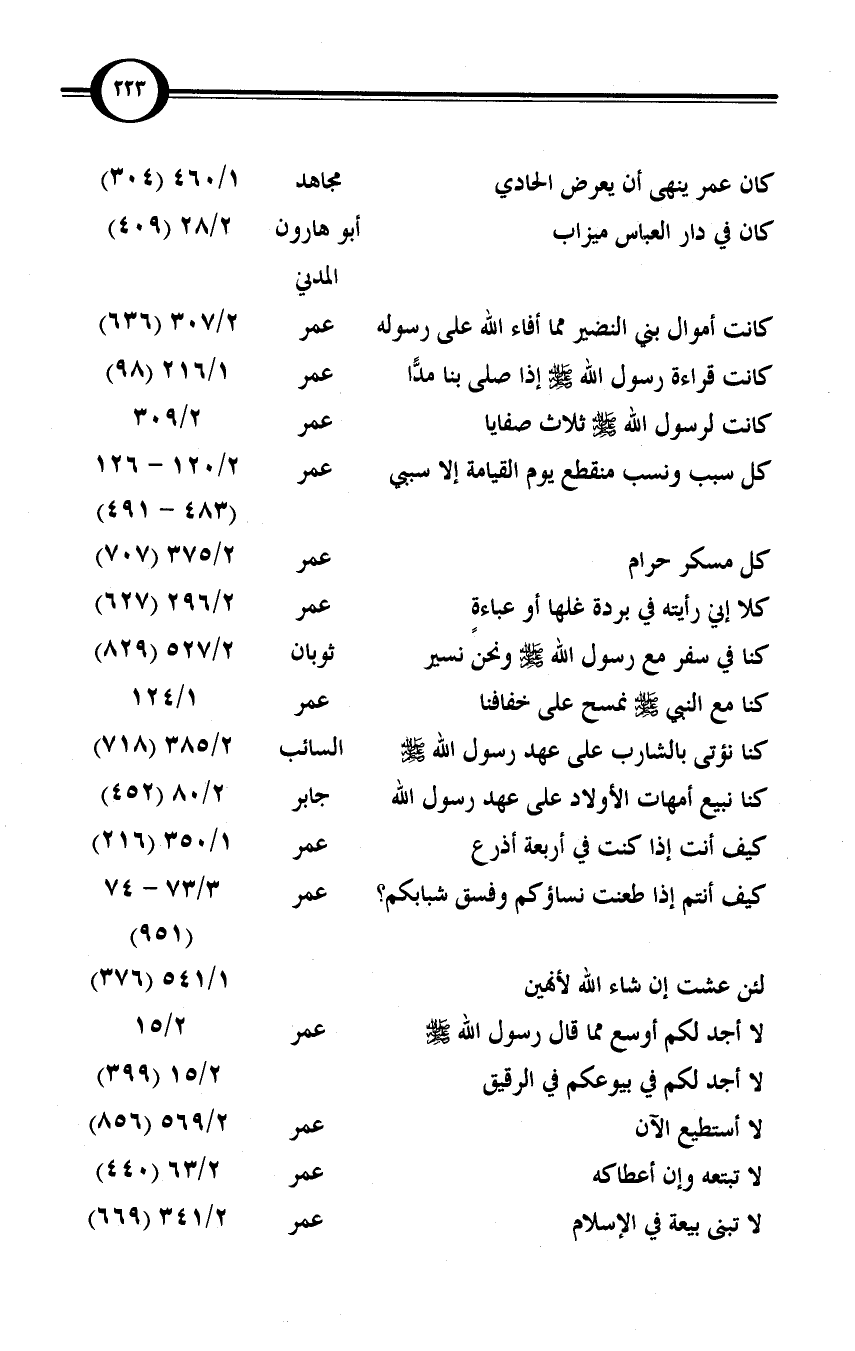 ٢٢٣
كان عمر ينهى أن يعرض الحادي مجاهد ٤٦٠/١ (٣٠٤)
كان في دار العباس ميزاب أبو هارون ٢٨/٢ (٤٠٩)
المدني
كانت أموال بني النضير مما أفاء الله على رسوله عمر ٣٠٧/٢ (٦٣٦)
كانت قراءة رسول الله ﷺ إذا صلى بنا مدًّا عمر ٢١٦/١ (٩٨)
كانت لرسول الله ﷺ ثلاث صفايا عمر ٣٠٩/٢
كل سبب ونسب منقطع يوم القيامة إلا سببي عمر ١٢٠/٢ – ١٢٦
(٤٨٣ – ٤٩١)
كل مسكر حرام عمر ٣٧٥/٢ (٧٠٧)
كلا إني رأيته في بردة غلها أو عباءةٍ عمر ٢٩٦/٢ (٦٢٧)
كنا في سفر مع رسول الله ﷺ ونحن نسير ثوبان ٥٢٧/٢ (٨٢٩)
كنا مع النبي ﷺ نمسح على خفافنا عمر ١٢٤/١
كنا نؤتى بالشارب على عهد رسول الله ﷺ السائب ٣٨٥/٢ (٧١٨)
كنا نبيع أمهات الأولاد على عهد رسول الله جابر ٨٠/٢ (٤٥٢)
كيف أنت إذا كنت في أربعة أذرع عمر ٣٥٠/١ (٢١٦)
كيف أنتم إذا طعنت نساؤكم وفسق شبابكم؟ عمر ٧٣/٣ – ٧٤
(٩٥١)
لئن عشت إن شاء الله لأنهين ٥٤١/١ (٣٧٦)
لا أجد لكم أوسع مما قال رسول الله ﷺ عمر ١٥/٢
لا أجد لكم في بيوعكم في الرقيق ١٥/٢ (٣٩٩)
لا أستطيع الآن عمر ٥٦٩/٢ (٨٥٦)
لا تبتعه وإن أعطاكه عمر ٦٣/٢ (٤٤٠)
لا تبنى بيعة في الإسلام عمر ٣٤١/٢ (٦٦٩)